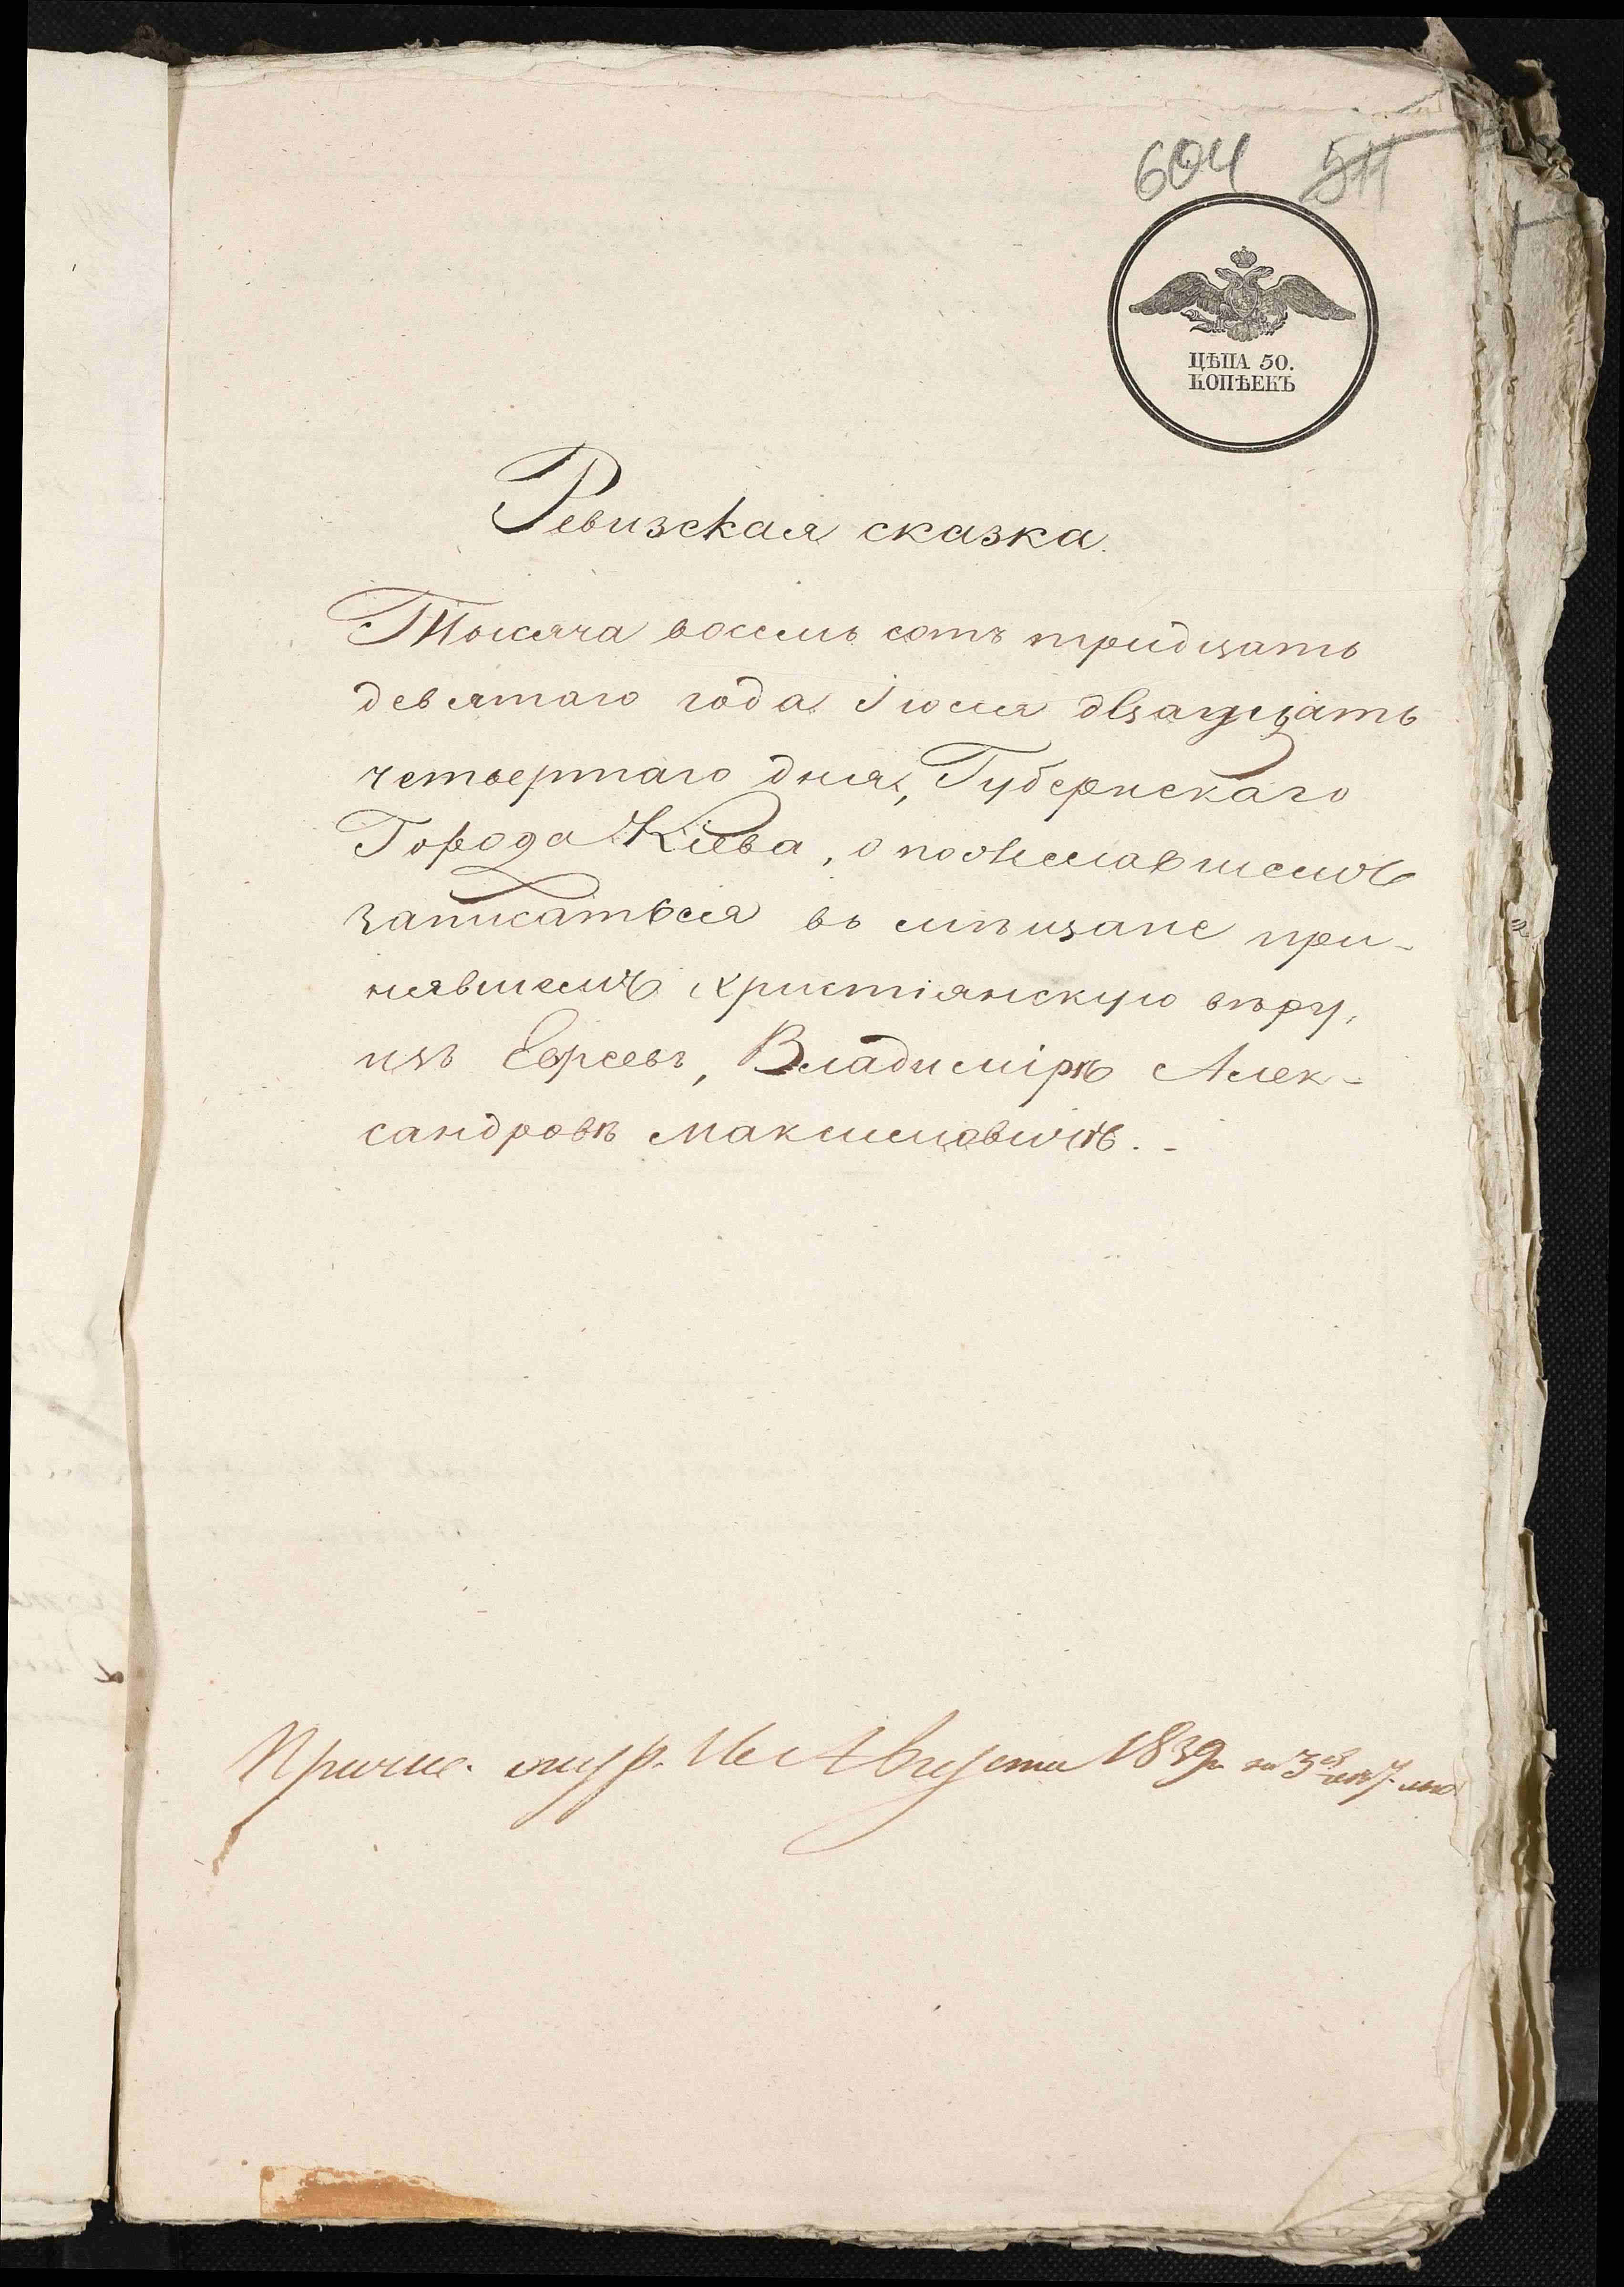 604 511
ЦѢНА 50.
КОПѢЕКЪ
Ревизская сказка.
Тысяча восемь сотъ тридцать
девятаго года Іюля двадцать
четвертаго дня, Губернскаго
Города Кіева, о пожелавшемъ
записаться въ мѣщане при-
нявшемъ христіянскую вѣру,
изъ Евреевъ, Владимірѣ Алек-
сандровѣ Максимовичѣ. -
Августа 1839